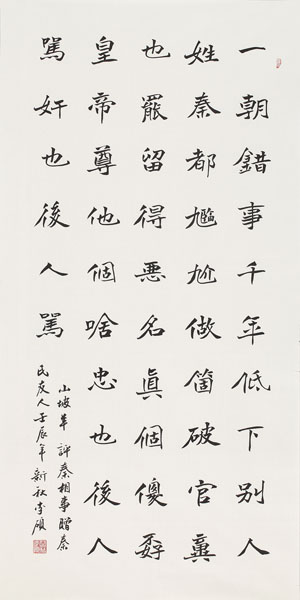 一朝錯事千年低下别人
姓秦都尷尬做箇破官
也罷留得惡名真個傻孬
皇帝尊他個啥忠也後人
罵奸也後人罵
山坡羊 評秦相事贈秦
氏友人壬辰年新秋李